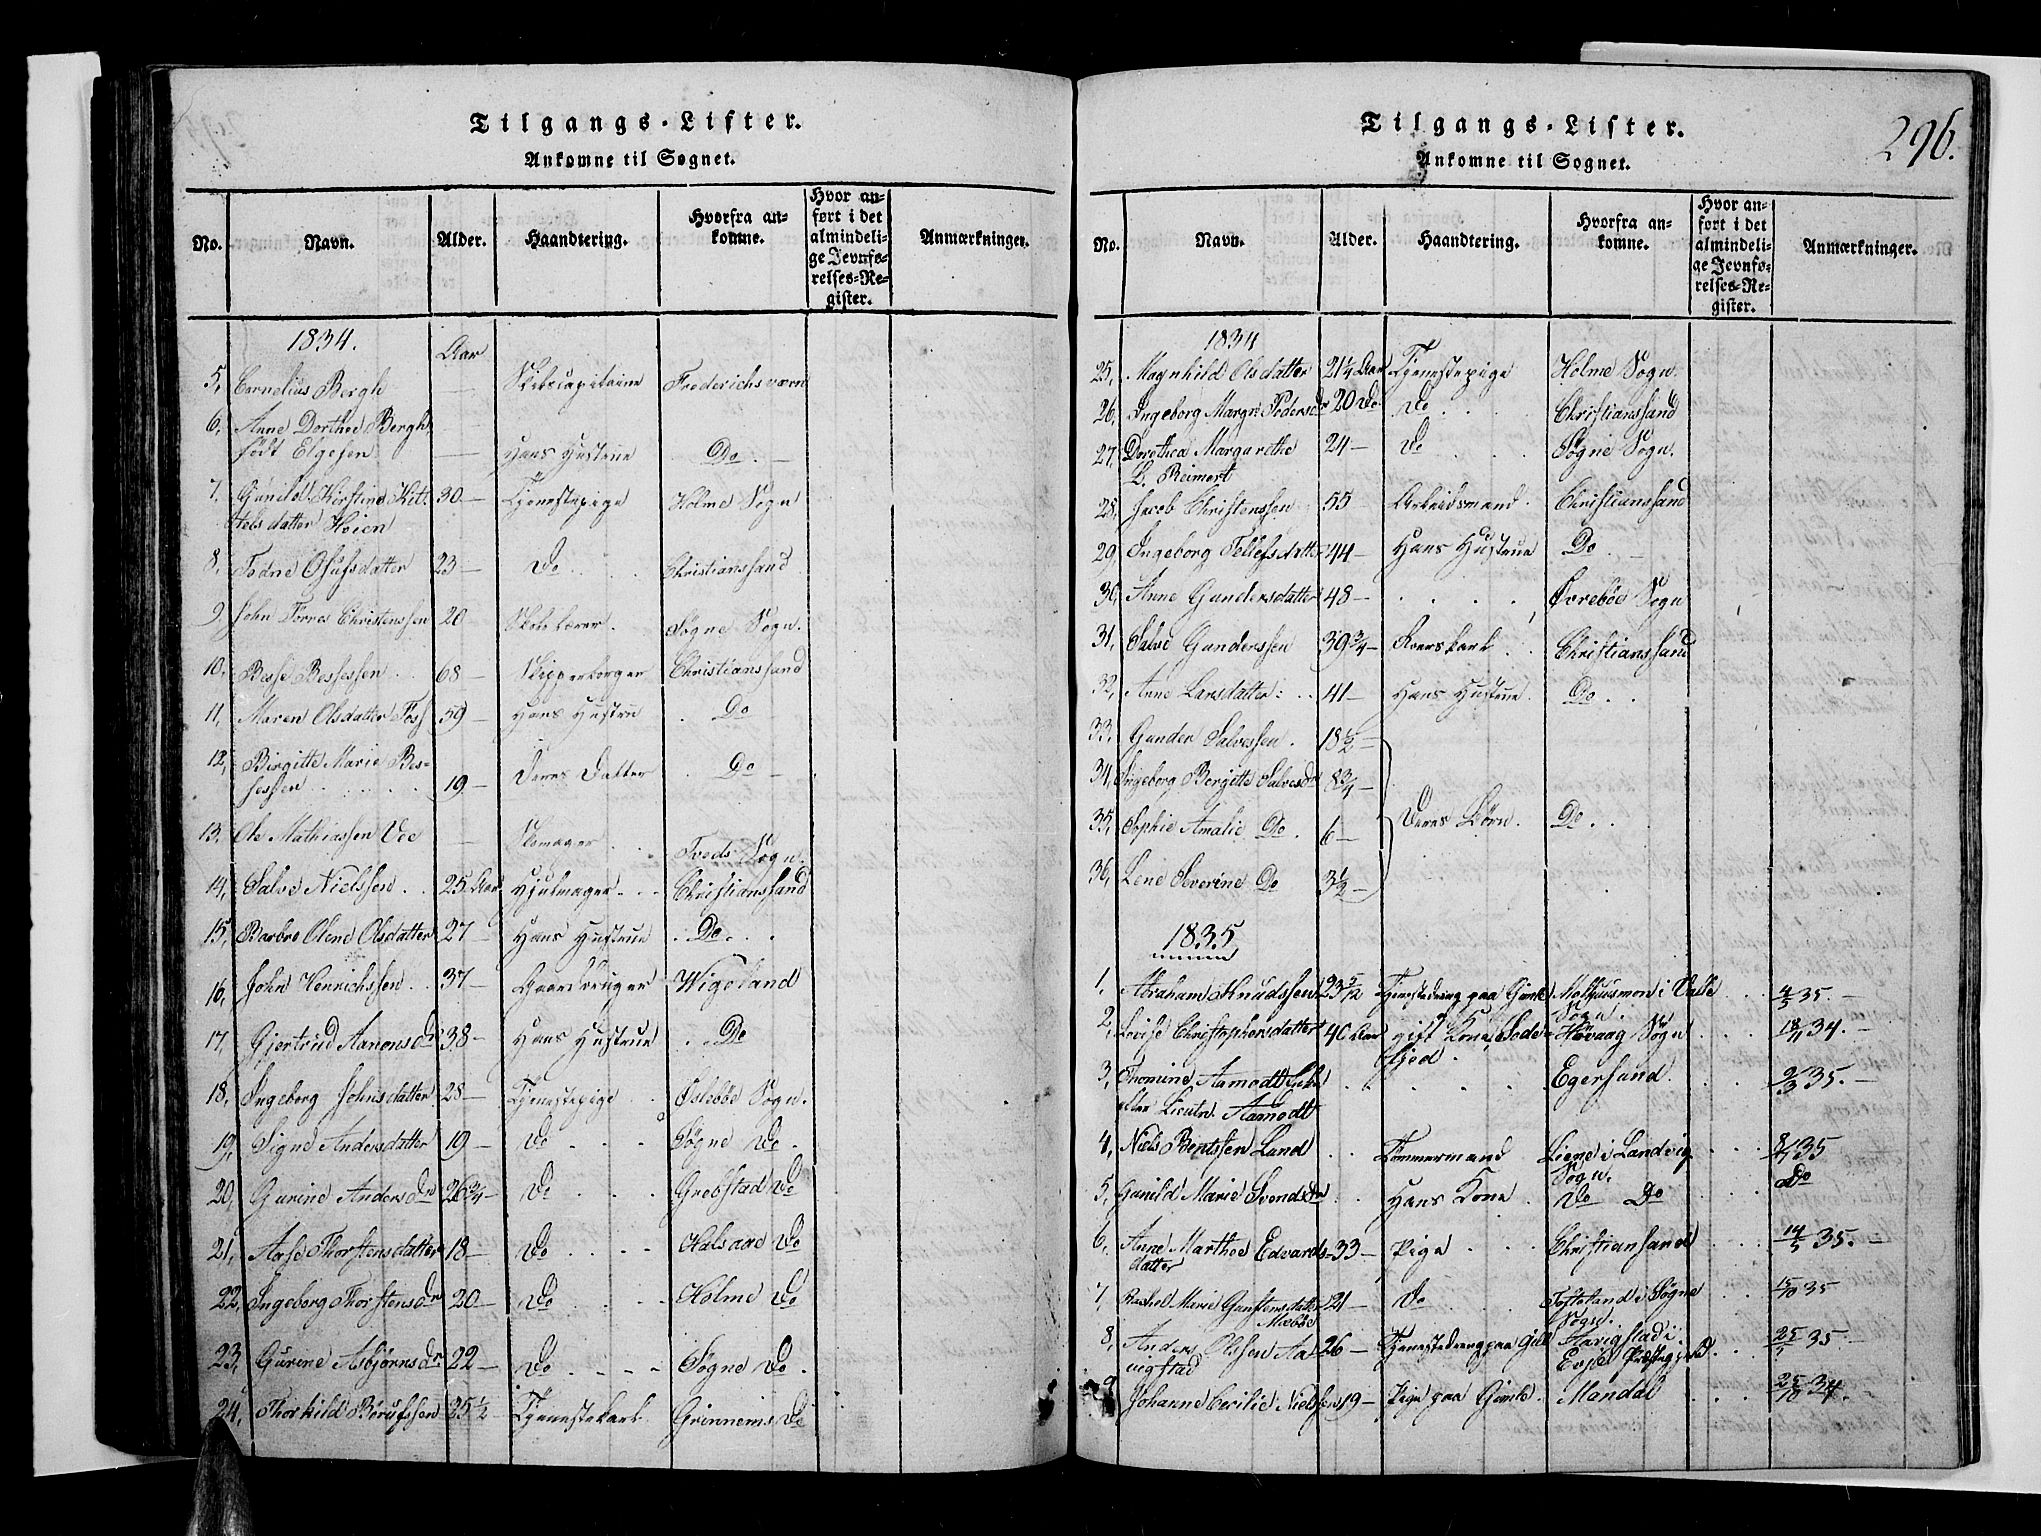 Tilgangs-Lister.
Ankomne til Sognet.
No.
Navn.
Alder.
Haandtering.
Hvorfra an-
komne.
Hvor an-
ført i det
almindeli-
ge Jevnfø-
relses-Re-
gister.
Anmærkninger.
1834.
Aar
5, Cornelius Bergh — Skibscapitaine Frederichsværn
6, Anne Dorthea Bergh —
født Elgesen — Hans Hustrue Do. —
7, Gunild Kirstine Kit- 30 — Tjenestepige Holme Sogn
telsdatter Høien
8, Todne Olufsdatter 23 — Do . . . Christianssand
9, John Torres Christenssen 20 Skolelærer. Søgne Sogn.
10, Besse Bessessen . . 68 — Skipperborger Christianssand
11, Maren Olsdatter Foss 59 — Hans Hustrue . Do
12, Birgitte Marie Bes-
sessen . . . . . 19 — Deres Datter . Do —
13, Ole Mathiassen Vee — Skomager . . Tveds Sogn.
14, Salve Nielssen . . 25 Aar Hjulmager . . . Christianssand
15, Barbro Olene Olsdatter 27 — Hans Hustrue . Do. . .
16, John Henrichssen . . 37 — Gaardbruger Wigeland
17, Gjertrud Aanonsdr 38 — Hans Hustrue . . Do
18, Ingeborg Johnsdatter 28 — Tjenestepige . . Øslebøe Sogn.
19, Signe Andersdatter 19 — Do . . . Søgne Do .
20, Gurine Andersdr 26 3/4 — Do . . . Grebstad Do
21, Aase Thorstensdatter 18 — Do . . . . Halsaae Do
22, Ingeborg Thorstensdr 20 — Do . . . Holme Do
23, Gurine Asbjørnsdr 22 — Do . . . Søgne Do .
24, Thorkild Børufssen 25 1/2 — Tjenestekarl Grinnems Do
Tilgangs-Lister.
Ankomne til Sognet.
296.
No.
Navn.
Alder.
Haandtering.
Hvorfra an-
komne.
Hvor an-
ført i det
almindeli-
ge Jevnfø-
relses-Re-
gister.
Anmærkninger.
1834
25, Magnhild Olsdatter 21 1/4 Aar Tjenestepige Holme Sogn.
26, Ingeborg Margr. Pedersdr 20 Do Do . . . Christianssand
27, Dorothea Margarethe 24 — Do . . . Søgne Sogn.
L. Reimert
28, Jacob Christenssen 55 — Arbeidsmand . Christianssand
29, Ingeborg Tellefsdatter 44 — Hans Hustrue Do . . —
30, Anne Gundersdatter 48 — . . . . Øvrebøe Sogn
31, Salve Gunderssen 39 3/4 — . . Christianssand
32, Anne Larsdatter . . . 41 — Hans Hustrue . Do . .
33, Gunder Salvessen . 18 1/2 —
34, Ingeborg Bergitte Salvesdr 8 3/4 —
35, Sophie Amalie Do . 6 — Deres Børn . Do . .
36, Lene Severine Do 3 1/2 —
1835
1, Abraham Knudssen 23 5/12 Tjenestedreng paa Gimle i Valle . . . 4/5 35. —
Sogn.
2, Lovise Christophersdatter 40 Aar gift Kone, Høvaag Sogn . . . 18/11 34. —
3, Thomine Aamodt . . . . Egersund . . . 2/3 35. —
eller Lieutn. Aamodt
4, Niels Bentssen Lund . . Tømmermand i Landvig . . . 8/4 35
Sogn.
5, Gunild Marie Svendsdr . . Hans Kone . Do Do . . . Do
6, Anne Marthea Edvards- 33 — Pige . . . Christianssand . . . 14/5 35. —
datter
7, Rachel Marie Gunstensdatter 21 — Do . . . i Søgne . . . 15/10 35
Sogn.
8, Anders Olssen Aa- 26 — Tjenestedreng paa Aavigstad i . . . 25/ 35
vigstad Evje Præstegjeld
9, Johanne Cecilie Nielssen 19 — Pige paa Gimle . Mandal . . . 25/10 34. —